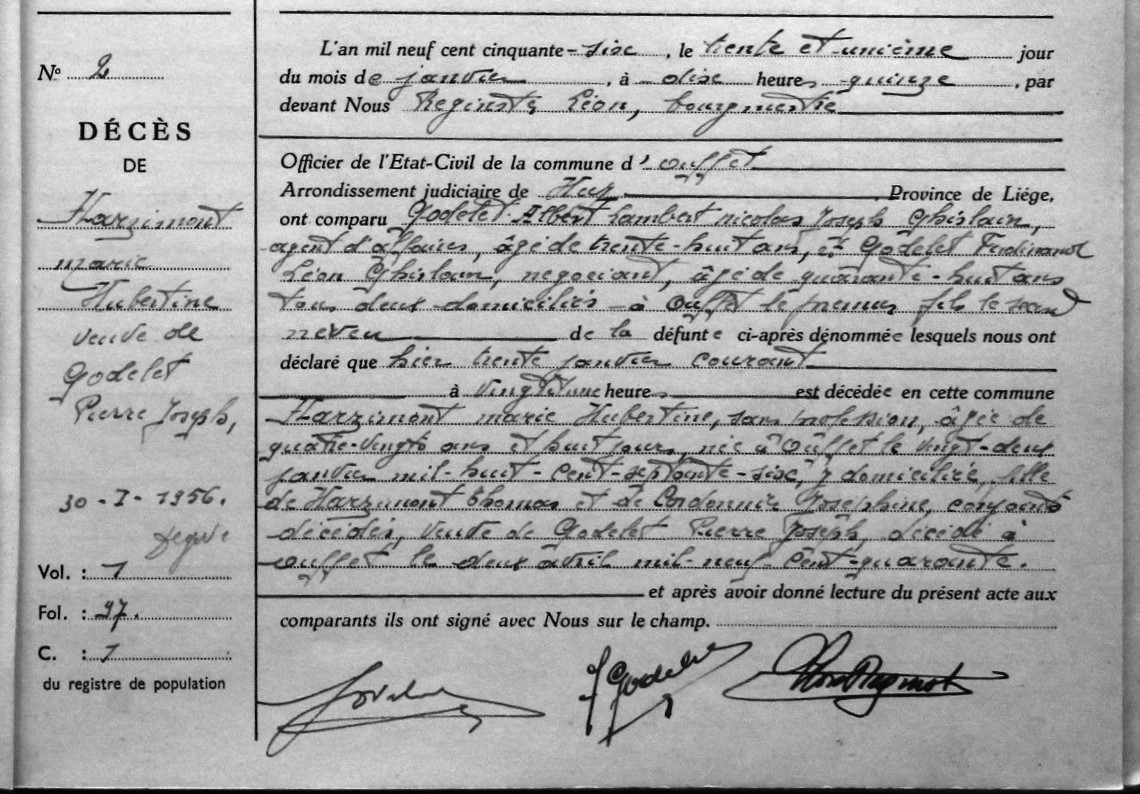 N° 2
DÉCÈS
DE
Harzimont
marie
Hubertine
veuve de
Godelet
Pierre Joseph,
30-I-1956.
Vol. : 1
Fol. : 97.
C. : 1
du registre de population
L'an mil neuf cent cinquante-sise, le trente et unième jour
du mois de janvier, à dise heures quinze, par
devant Nous Reginster Léon, bourgmestre
Officier de l'Etat-Civil de la commune d'Ouffet
Arrondissement judiciaire de Huy, Province de Liége,
ont comparu Godelet Albert Lambert nicolas Joseph Ghislain,
agent d'affaires, âgé de trente-huit ans, et Godelet Ferdinand
Léon Ghislain, négociant, âgé de quarante-huit ans
tous deux domiciliés à Ouffet le premier fils le second
neveu de la défunte ci-après dénommée lesquels nous ont
déclaré que hier trente janvier courant
à vingt et une heures est décédée en cette commune
Harzimont marie Hubertine, sans profession, âgée de
quatre-vingts ans et huit jours, née à Ouffet le vingt-deux
janvier mil-huit-cent-septante-sise, y domiciliée, fille
de Harzimont Thomas et de Cordonnier Joséphine, conjoints
décédés, veuve de Godelet Pierre Joseph, décédé à
Ouffet le deux avril mil-neuf-cent-quarante.
et après avoir donné lecture du présent acte aux
comparants ils ont signé avec Nous sur le champ.